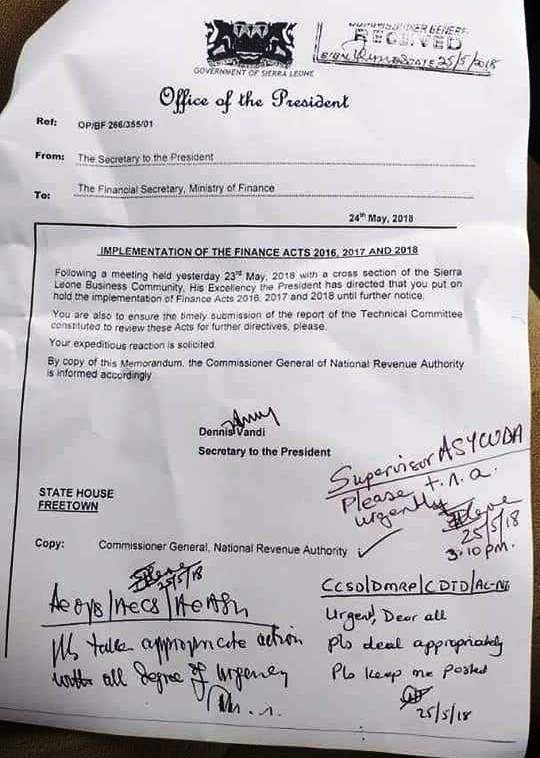 COMMISSIONER GENERAL
RECEIVED
SIGN DATE 25/5/2018
GOVERNMENT OF SIERRA LEONE
Office of the President
Ref: OP/BF 266/355/01
From: The Secretary to the President
To: The Financial Secretary, Ministry of Finance
24th May, 2018
IMPLEMENTATION OF THE FINANCE ACTS 2016, 2017 AND 2018
Following a meeting held yesterday 23rd May, 2018 with a cross section of the Sierra
Leone Business Community, His Excellency the President has directed that you put on
hold the implementation of Finance Acts 2016, 2017 and 2018 until further notice.
You are also to ensure the timely submission of the report of the Technical Committee
constituted to review these Acts for further directives, please.
Your expeditious reaction is solicited.
By copy of this Memorandum, the Commissioner General of National Revenue Authority
is informed accordingly
Dennis Vandi
Secretary to the President
Supervisor ASYCUDA
Please t.n.a.
urgently
25/5/18
3:10 pm.
STATE HOUSE
FREETOWN
Copy: Commissioner General, National Revenue Authority
25/5/18
CCSD/DMRP/CDTD/
Urgent, Dear all
Pls take appropriate action
Pls deal appropriately
with all degree of urgency
Pls keep me posted
25/5/18